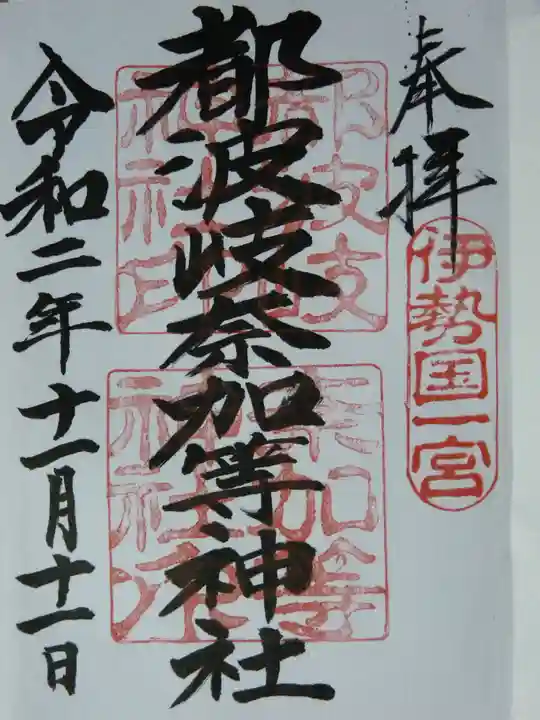 奉拝
伊勢国一宮
都波岐奈加等神社
令和二年十一月十一日